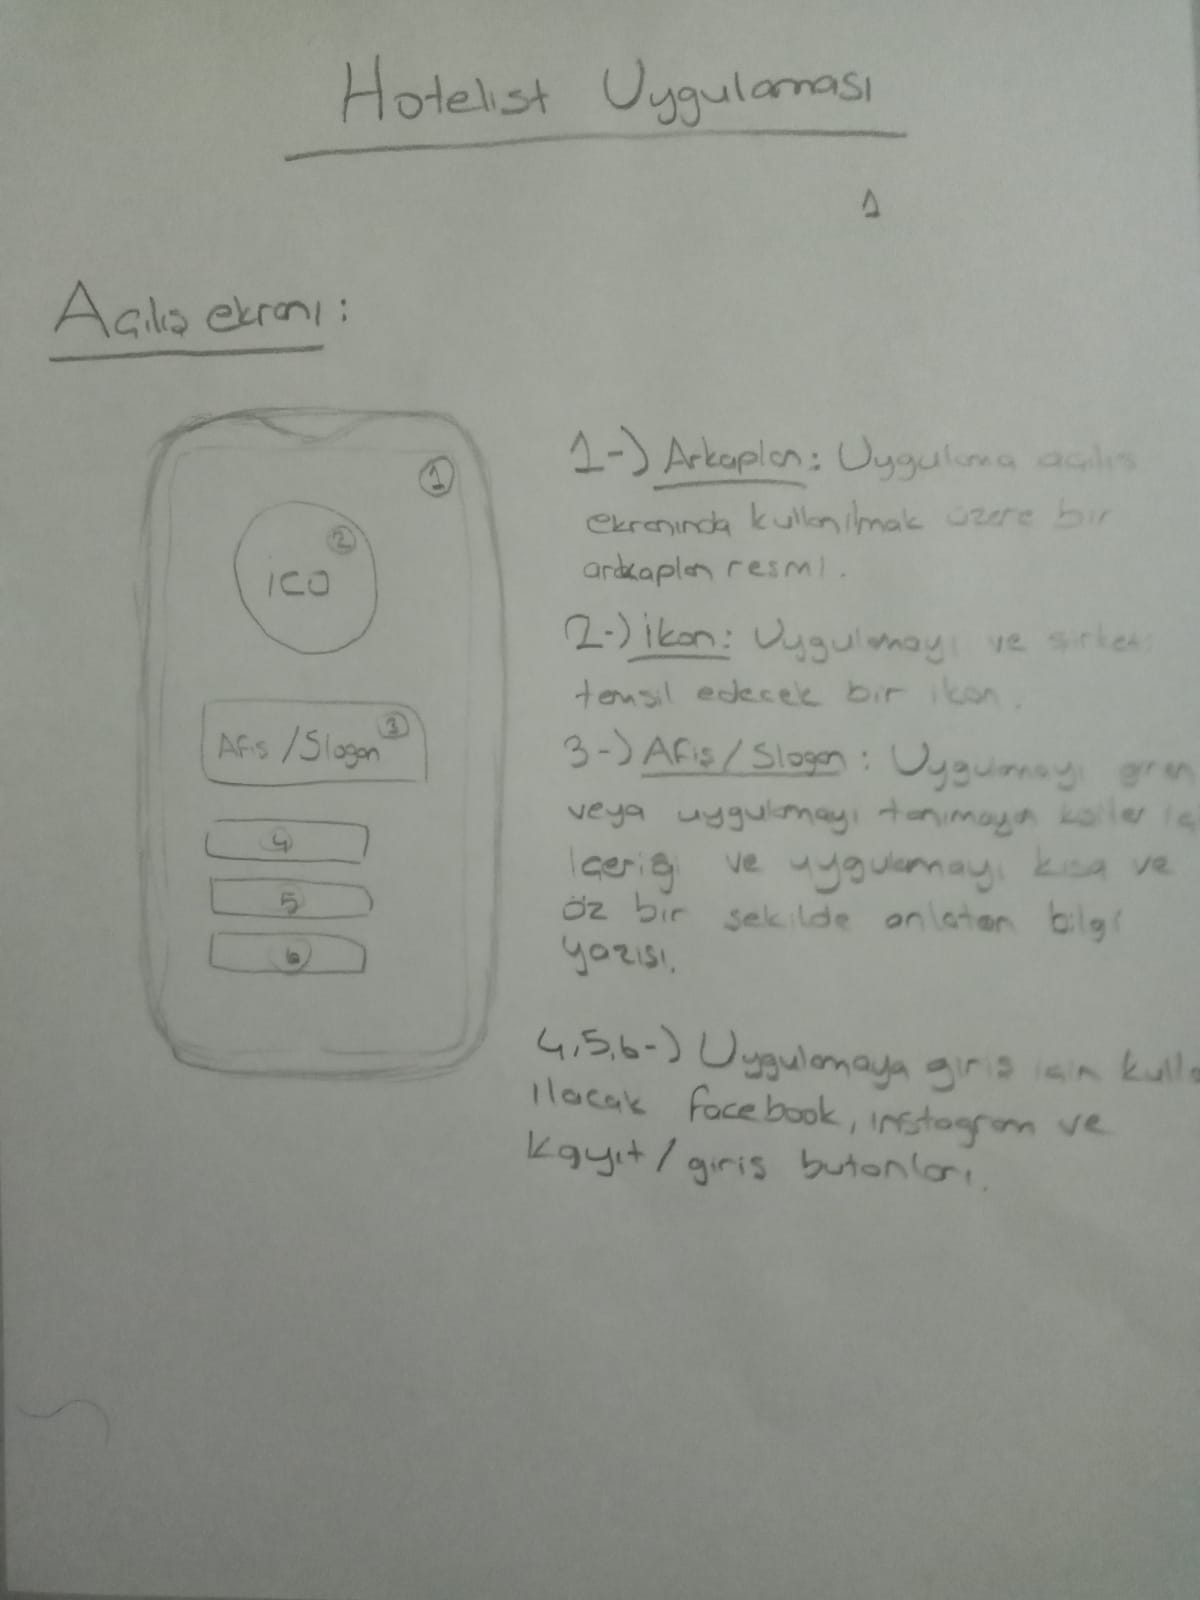 Hotelist Uygulaması
1
Açılış ekranı:
1
2
ico
Afiş/Slogan 3
4
5
6
1-) Arkaplan: Uygulama açılış
ekranında kullanılmak üzere bir
arkaplan resmi.
2-) İkon: Uygulamayı ve
temsil edecek bir ikon.
3-) Afiş/Slogan: Uygulmayı giren
veya uygulamayı tanımayan
içeriği ve uygulamayı kısa ve
öz bir şekilde anlatan bilgi
yazısı.
4,5,6-) Uygulamaya giriş için kulla
ılacak facebook, instagram ve
Kayıt/giriş butonları.